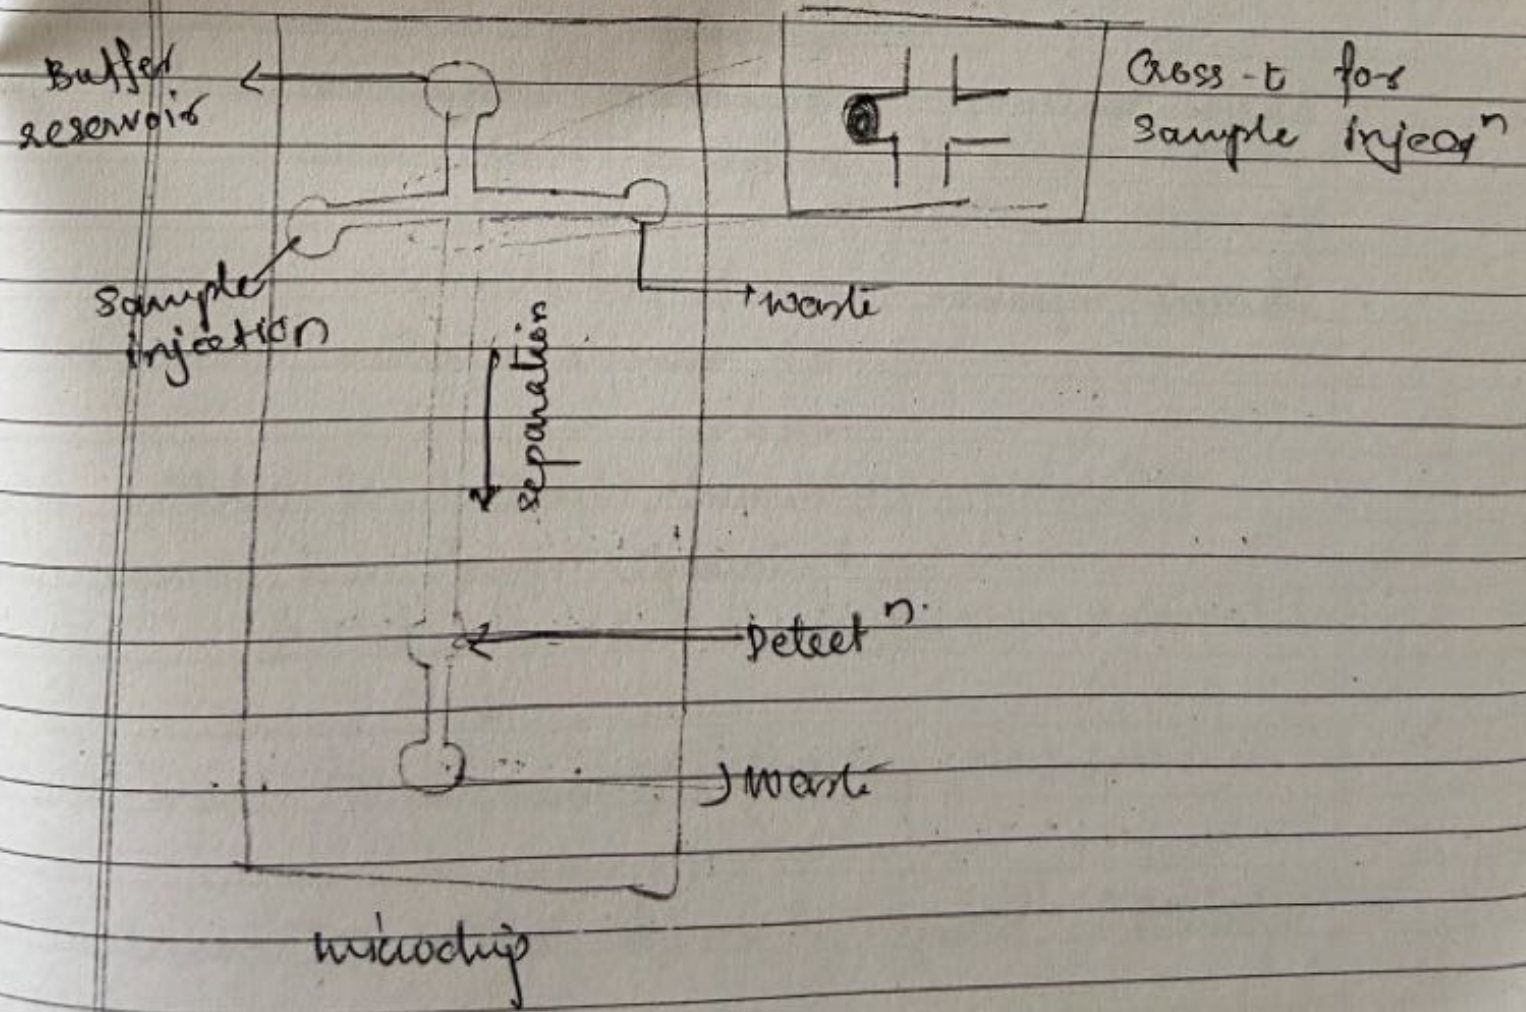 Buffer
reservoir
Cross-t for
sample injecⁿ
sample
injection
waste
separation
Detectⁿ.
waste
microchip